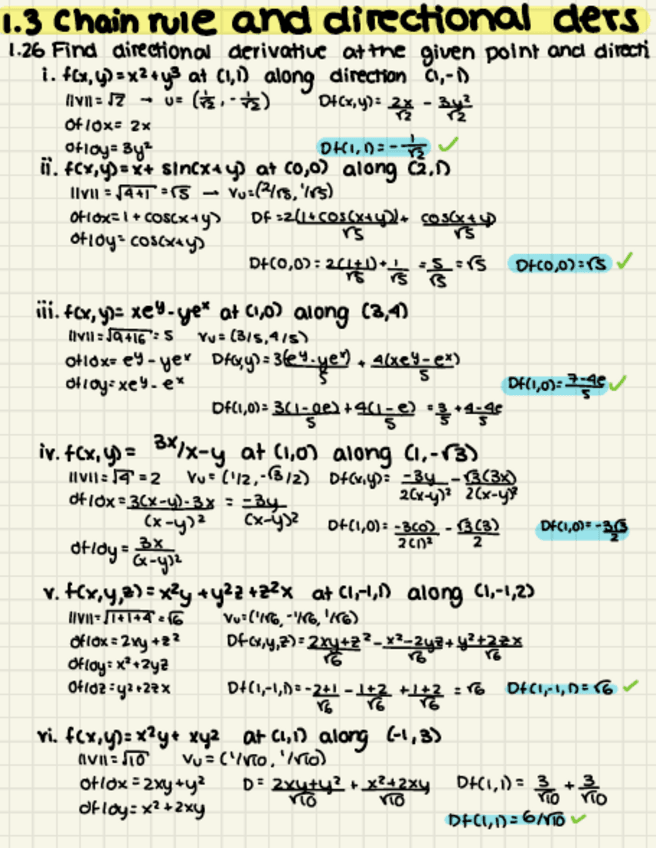 1.3 Chain rule and directional ders
1.26 Find directional derivative at the given point and directi
i. f(x,y)=x²+y³ at (1,1) along direction (1,-1)
||v||=√2 → u=(1/√2, -1/√2) Df(x,y)= 2x/√2 - 3y²/√2
∂f/∂x= 2x
∂f/∂y= 3y² Df(1,1)=-1/√2 ✓
ii. f(x,y)=x+ sin(x+y) at (0,0) along (2,1)
||v||=√4+1 =√5 → Vu=(2/√5, 1/√5)
∂f/∂x=1+cos(x+y) Df =2(1+cos(x+y))/√5 + cos(x+y)/√5
∂f/∂y= cos(x+y)
Df(0,0)= 2(1+1)/√5 + 1/√5 = 5/√5 =√5 Df(0,0)=√5 ✓
iii. f(x,y)= xe^y-ye^x at (1,0) along (3,4)
||v||=√9+16 = 5 Vu=(3/5, 4/5)
∂f/∂x= e^y-ye^x Df(x,y)=3(e^y-ye^x)/5 + 4(xe^y-e^x)/5
∂f/∂y=xe^y-e^x Df(1,0)= 7-4e/5 ✓
Df(1,0)= 3(1-0e)/5 + 4(1-e)/5 = 3/5 + 4-4e/5
iv. f(x,y)= 3x/x-y at (1,0) along (1,-√3)
||v||=√4 =2 Vu=(1/2, -√3/2) Df(x,y)= -3y/2(x-y)² - √3(3x)/2(x-y)²
∂f/∂x=3(x-y)-3x/(x-y)² = -3y/(x-y)²
Df(1,0)= -3(0)/2(1)² - √3(3)/2 Df(1,0)=-3√3/2
∂f/∂y = 3x/(x-y)²
v. f(x,y,z)=x²y+y²z+z²x at (1,-1,1) along (1,-1,2)
||v||=√1+1+4 =√6 Vu=(1/√6, -1/√6, 1/√6)
∂f/∂x= 2xy+z² Df(x,y,z)= 2xy+z²/√6 - x²-2yz/√6 + y²+2zx/√6
∂f/∂y= x²+2yz
∂f/∂z= y²+2zx Df(1,-1,1)= -2+1/√6 - 1+2/√6 + 1+2/√6 = √6 Df(1,-1,1)=√6 ✓
vi. f(x,y)=x²y+ xy² at (1,1) along (-1,3)
||v||=√10 Vu=(1/√10, 1/√10)
∂f/∂x= 2xy+y² D= 2xy+y²/√10 + x²+2xy/√10 Df(1,1)= 3/√10 + 3/√10
∂f/∂y= x²+2xy
Df(1,1)= 6/√10 ✓